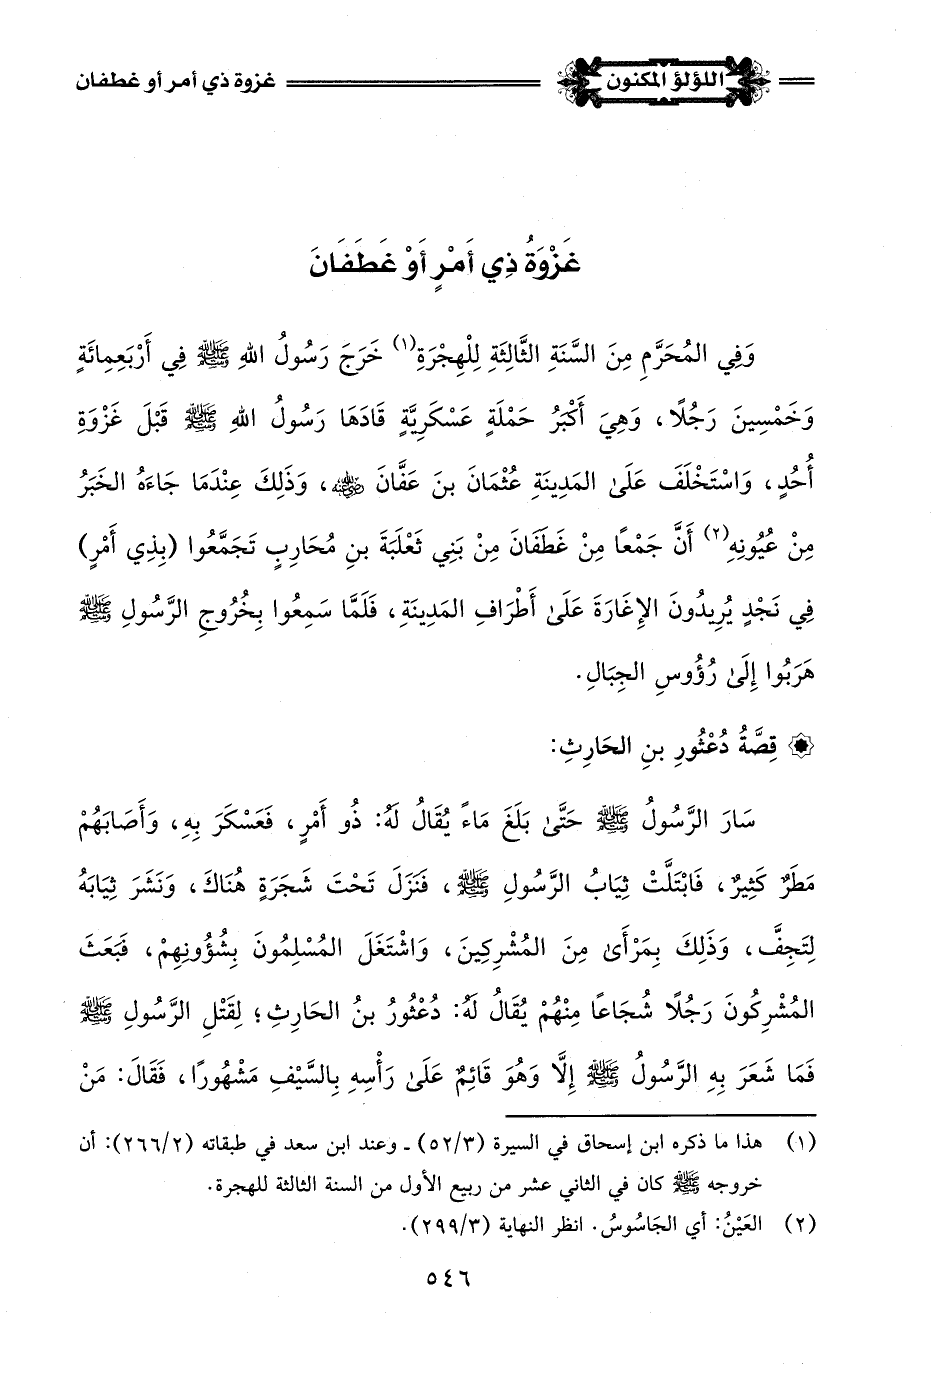 اللؤلؤ المكنون
غزوة ذي أمر أو غطفان
غَزْوَةُ ذِي أَمْرٍ أَوْ غَطَفَانَ
وَفِي المُحَرَّمِ مِنَ السَّنَةِ الثَّالِثَةِ لِلْهِجْرَةِ(١) خَرَجَ رَسُولُ اللهِ ﷺ فِي أَرْبَعِمِائَةٍ
وَخَمْسِينَ رَجُلًا، وَهِيَ أَكْبَرُ حَمْلَةٍ عَسْكَرِيَّةٍ قَادَهَا رَسُولُ اللهِ ﷺ قَبْلَ غَزْوَةِ
أُحُدٍ، وَاسْتَخْلَفَ عَلَىٰ المَدِينَةِ عُثْمَانَ بنَ عَفَّانَ رضي الله عنه، وَذَلِكَ عِنْدَمَا جَاءَهُ الخَبَرُ
مِنْ عُيُونِهِ(٢) أَنَّ جَمْعًا مِنْ غَطَفَانَ مِنْ بَنِي ثَعْلَبَةَ بنِ مُحَارِبٍ تَجَمَّعُوا (بِذِي أَمْرٍ)
فِي نَجْدٍ يُرِيدُونَ الإِغَارَةَ عَلَىٰ أَطْرَافِ المَدِينَةِ، فَلَمَّا سَمِعُوا بِخُرُوجِ الرَّسُولِ ﷺ
هَرَبُوا إِلَىٰ رُؤُوسِ الجِبَالِ.
قِصَّةُ دُعْثُورِ بنِ الحَارِثِ:
سَارَ الرَّسُولُ ﷺ حَتَّىٰ بَلَغَ مَاءً يُقَالُ لَهُ: ذُو أَمْرٍ، فَعَسْكَرَ بِهِ، وَأَصَابَهُمْ
مَطَرٌ كَثِيرٌ، فَابْتَلَّتْ ثِيَابُ الرَّسُولِ ﷺ، فَنَزَلَ تَحْتَ شَجَرَةٍ هُنَاكَ، وَنَشَرَ ثِيَابَهُ
لِتَجِفَّ، وَذَلِكَ بِمَرْأَىٰ مِنَ المُشْرِكِينَ، وَاشْتَغَلَ المُسْلِمُونَ بِشُؤُونِهِمْ، فَبَعَثَ
المُشْرِكُونَ رَجُلًا شُجَاعًا مِنْهُمْ يُقَالُ لَهُ: دُعْثُورُ بنُ الحَارِثِ؛ لِقَتْلِ الرَّسُولِ ﷺ
فَمَا شَعَرَ بِهِ الرَّسُولُ ﷺ إِلَّا وَهُوَ قَائِمٌ عَلَىٰ رَأْسِهِ بِالسَّيْفِ مَشْهُورًا، فَقَالَ: مَنْ
(١) هذا ما ذكره ابن إسحاق في السيرة (٥٢/٣) ـ وعند ابن سعد في طبقاته (٢٦٦/٢): أن
خروجه ﷺ كان في الثاني عشر من ربيع الأول من السنة الثالثة للهجرة.
(٢) العَيْنُ: أي الجَاسُوسُ. انظر النهاية (٢٩٩/٣).
٥٤٦